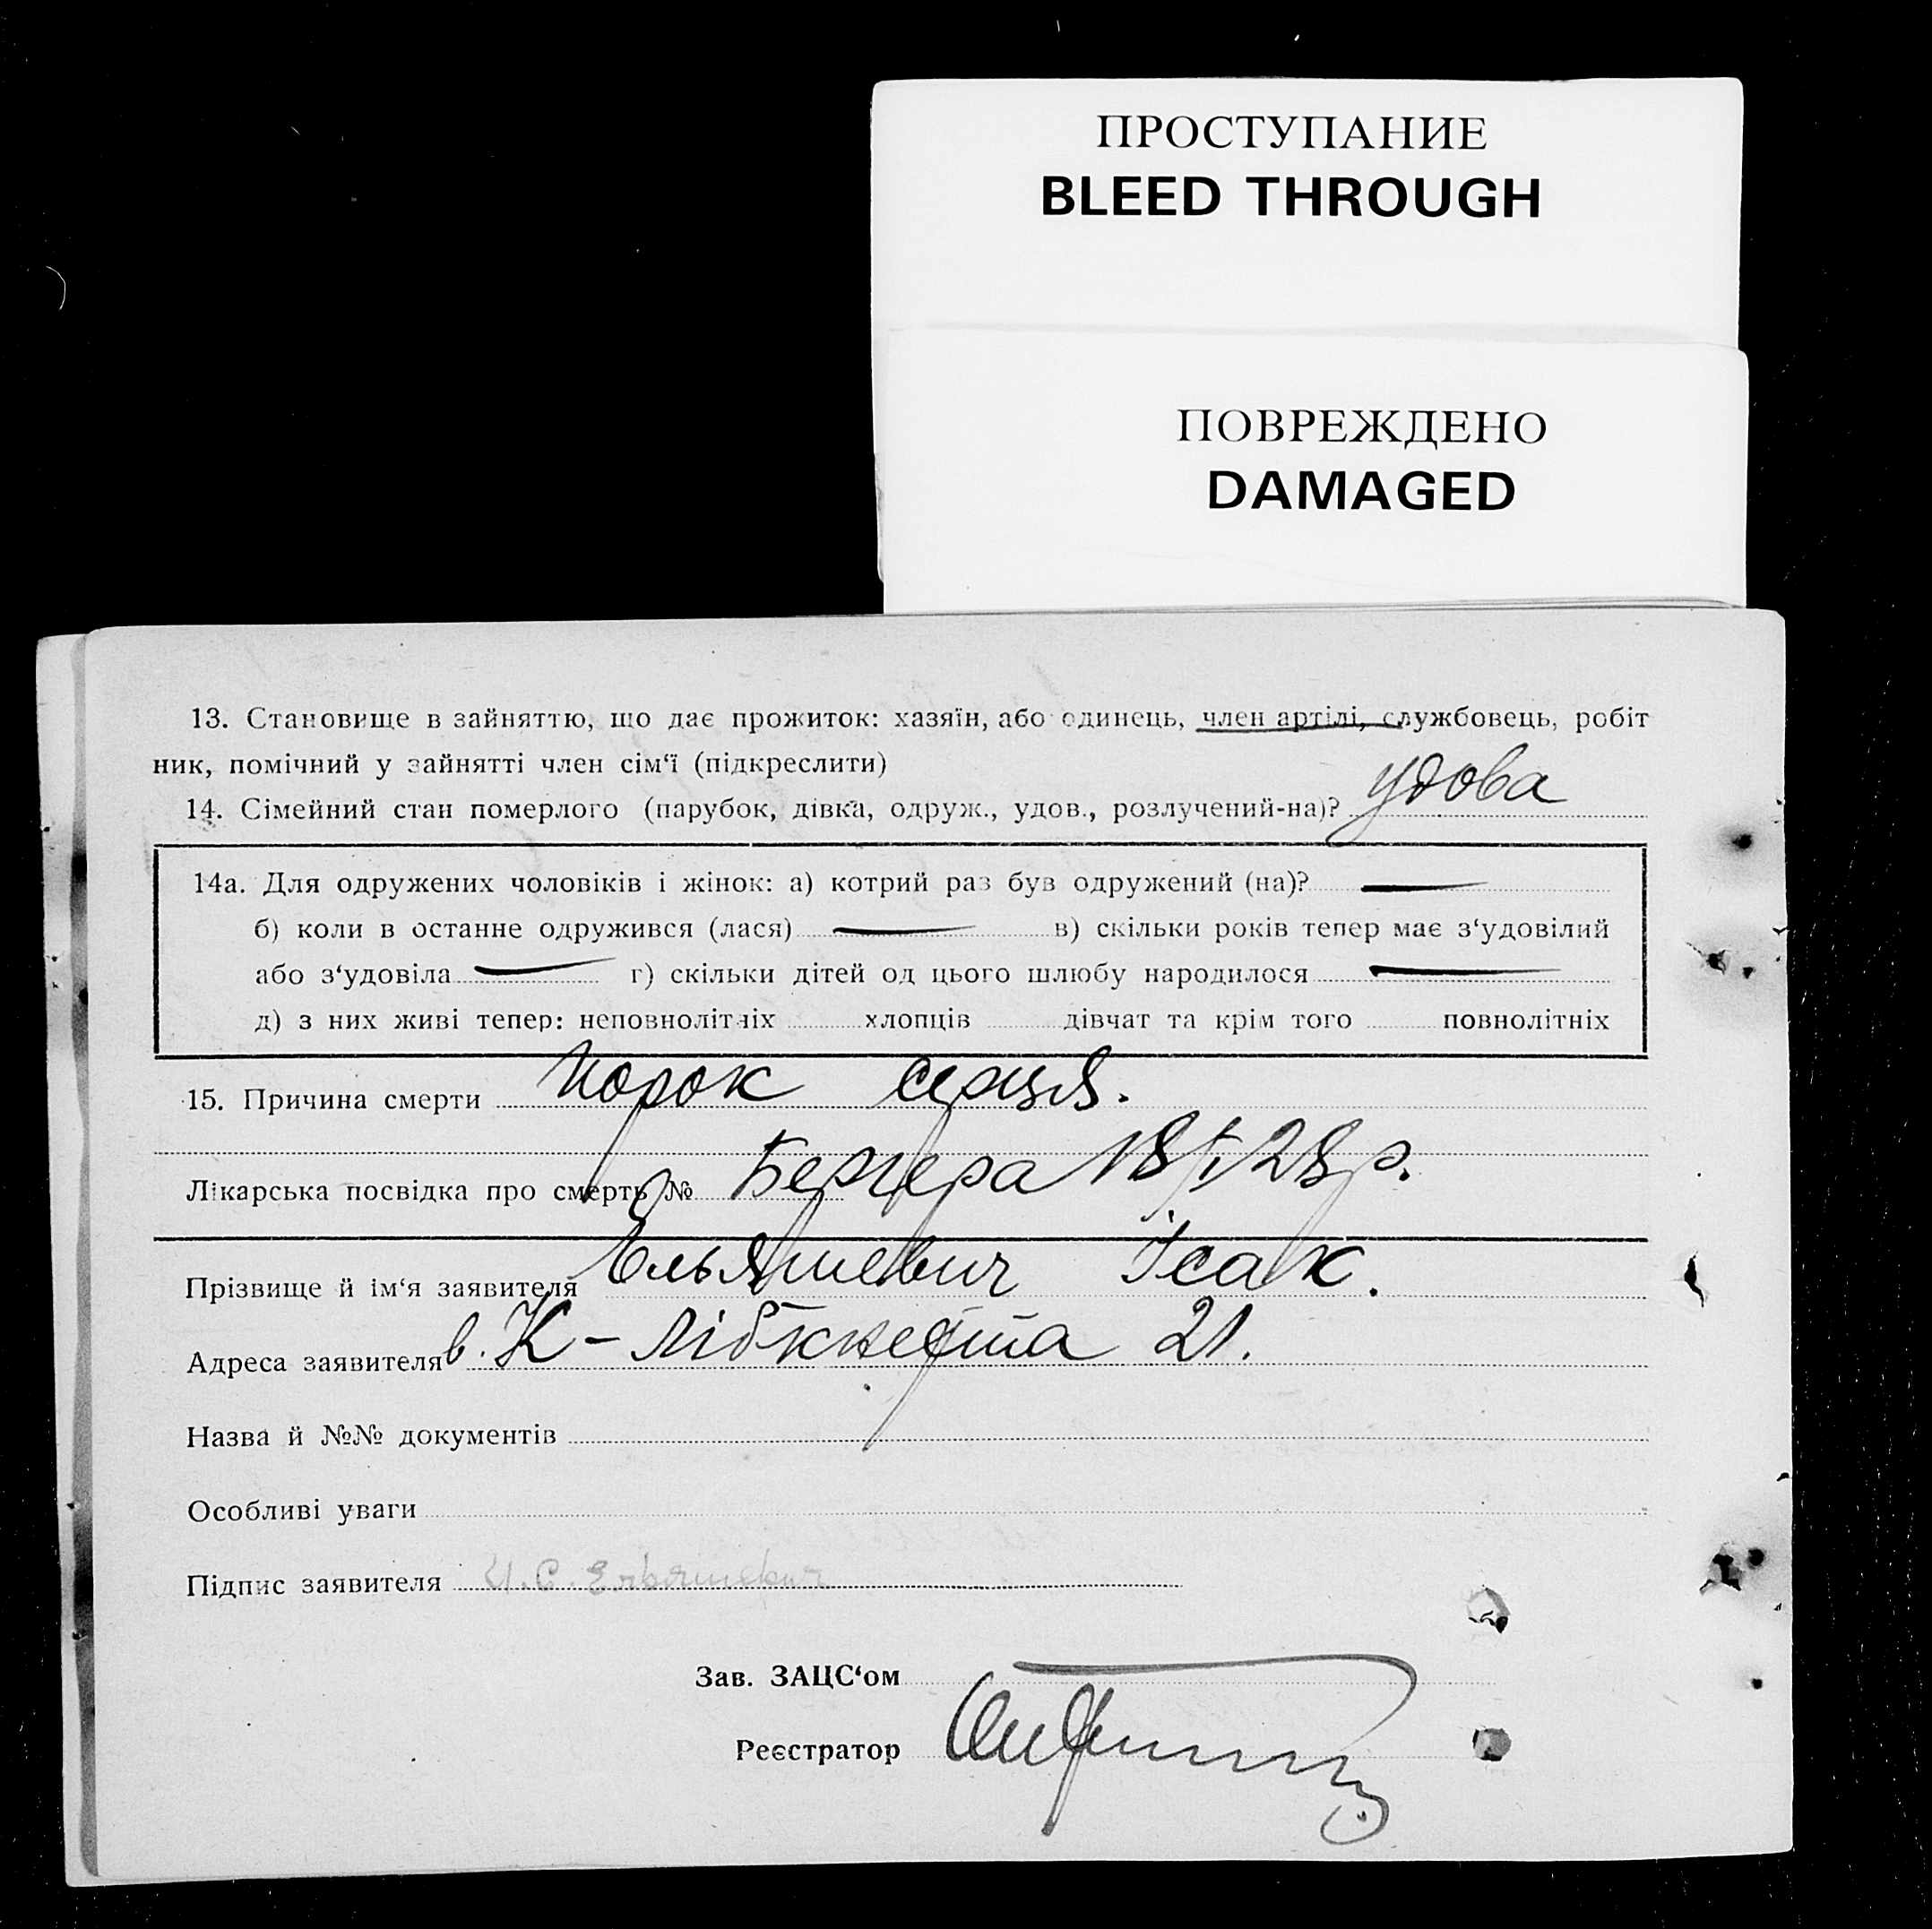 ПРОСТУПАНИЕ
BLEED THROUGH
ПОВРЕЖДЕНО
DAMAGED
13. Становище в зайняттю, що дає прожиток: хазяїн, або одинець, член артілі, службовець, робіт
ник, помічний у зайнятті член сім‘ї (підкреслити)
14. Сімейний стан померлого (парубок, дівка, одруж., удов., розлучений-на)? удова
14а. Для одружених чоловіків і жінок: а) котрий раз був одружений (на)? —
б) коли в останне одружився (лася) — в) скільки років тепер має з‘удовілий
або з‘удовіла — г) скільки дітей од цього шлюбу народилося —
д) з них живі тепер: неповнолітніх хлопців дівчат та крім того повнолітніх
15. Причина смерти порок серця.
Лікарська посвідка про смерть № Бергера 18/I 28 р.
Прізвище й ім‘я заявителя Ельяшевич Ісак.
Адреса заявителя в. К-Лібкнехта 21.
Назва й №№ документів
Особливі уваги
Підпис заявителя И.С. Эльяшевич
Зав. ЗАЦС‘ом
Реєстратор